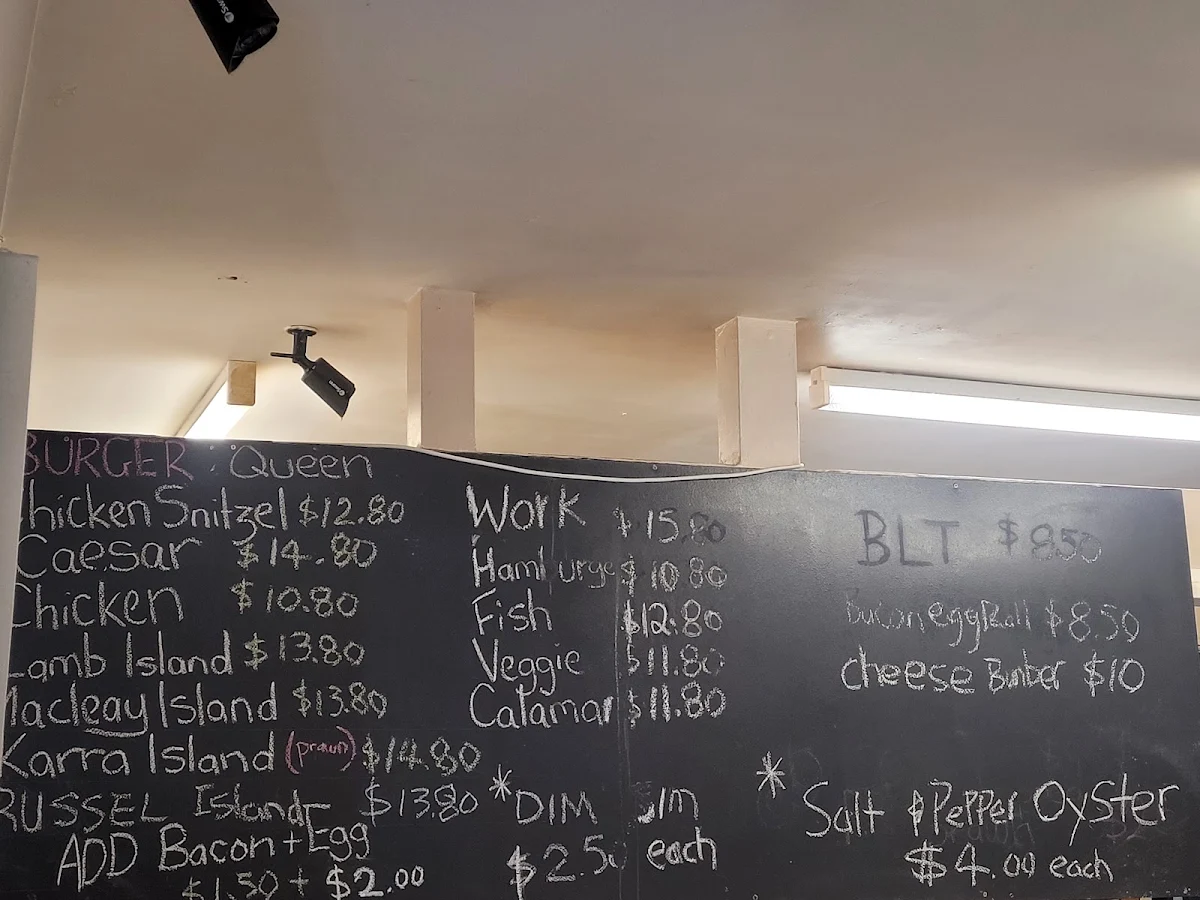 BURGER : Queen
Chicken Snitzel $12.80
Caesar $14.80
Chicken $10.80
Lamb Island $13.80
Macleay Island $13.80
Karra Island (prawn) $14.80
RUSSEL Island $13.80
ADD Bacon + Egg
$1.50 + $2.00
Work $15.80
Hamburge $10.80
Fish $12.80
Veggie $11.80
Calamar $11.80
*DIM SIM
$2.50 each
BLT $8.50
Bacon egg Roll $8.50
cheese $10
* Salt & Pepper Oyster
$4.00 each